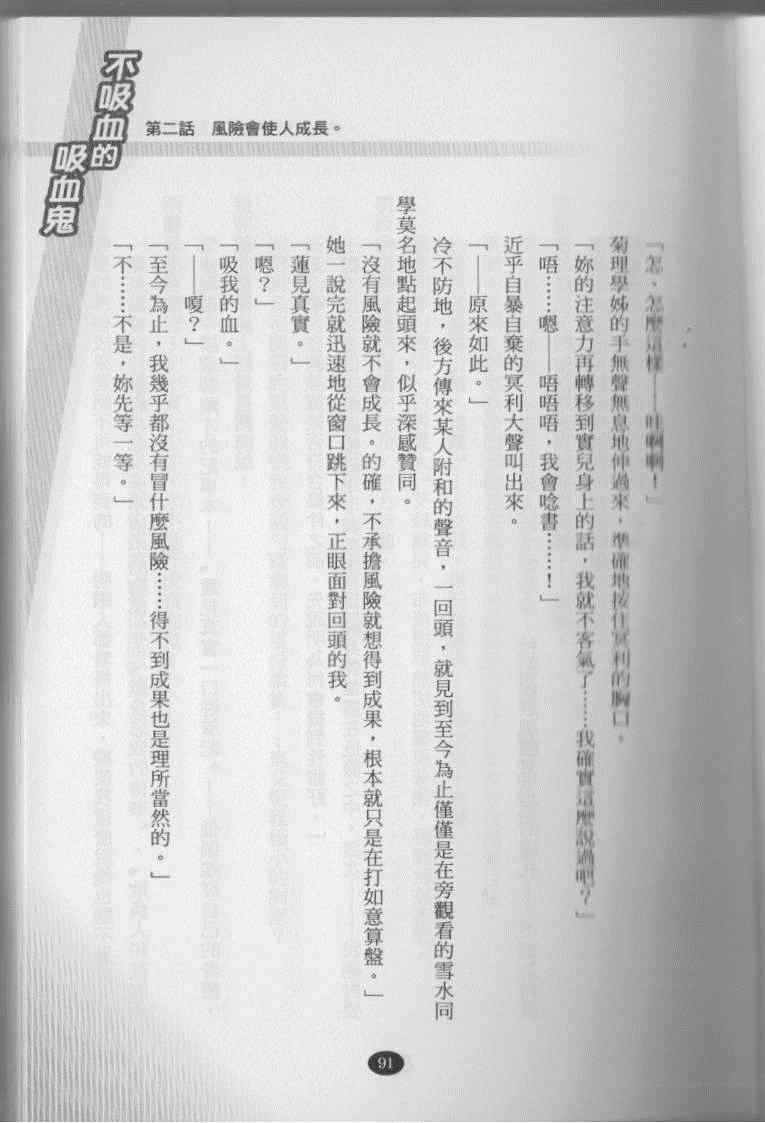 不吸血的
吸血鬼
第二話　風險會使人成長。
「怎、怎麼這樣——哇啊啊！」
菊理學姊的手無聲無息地伸過來，準確地按住冥利的胸口。
「妳的注意力再轉移到實兒身上的話，我就不客氣了……我確實這麼說過吧？」
「唔……嗯——唔唔唔，我會唸書……！」
近乎自暴自棄的冥利大聲叫出來。
「——原來如此。」
冷不防地，後方傳來某人附和的聲音，一回頭，就見到至今為止僅僅是在旁觀看的雪水同
學莫名地點起頭來，似乎深感贊同。
「沒有風險就不會成長。的確，不承擔風險就想得到成果，根本就只是在打如意算盤。」
她一說完就迅速地從窗口跳下來，正眼面對回頭的我。
「蓮見真實。」
「嗯？」
「吸我的血。」
「——嗄？」
「至今為止，我幾乎都沒有冒什麼風險……得不到成果也是理所當然的。」
「不……不是，妳先等一等。」
91